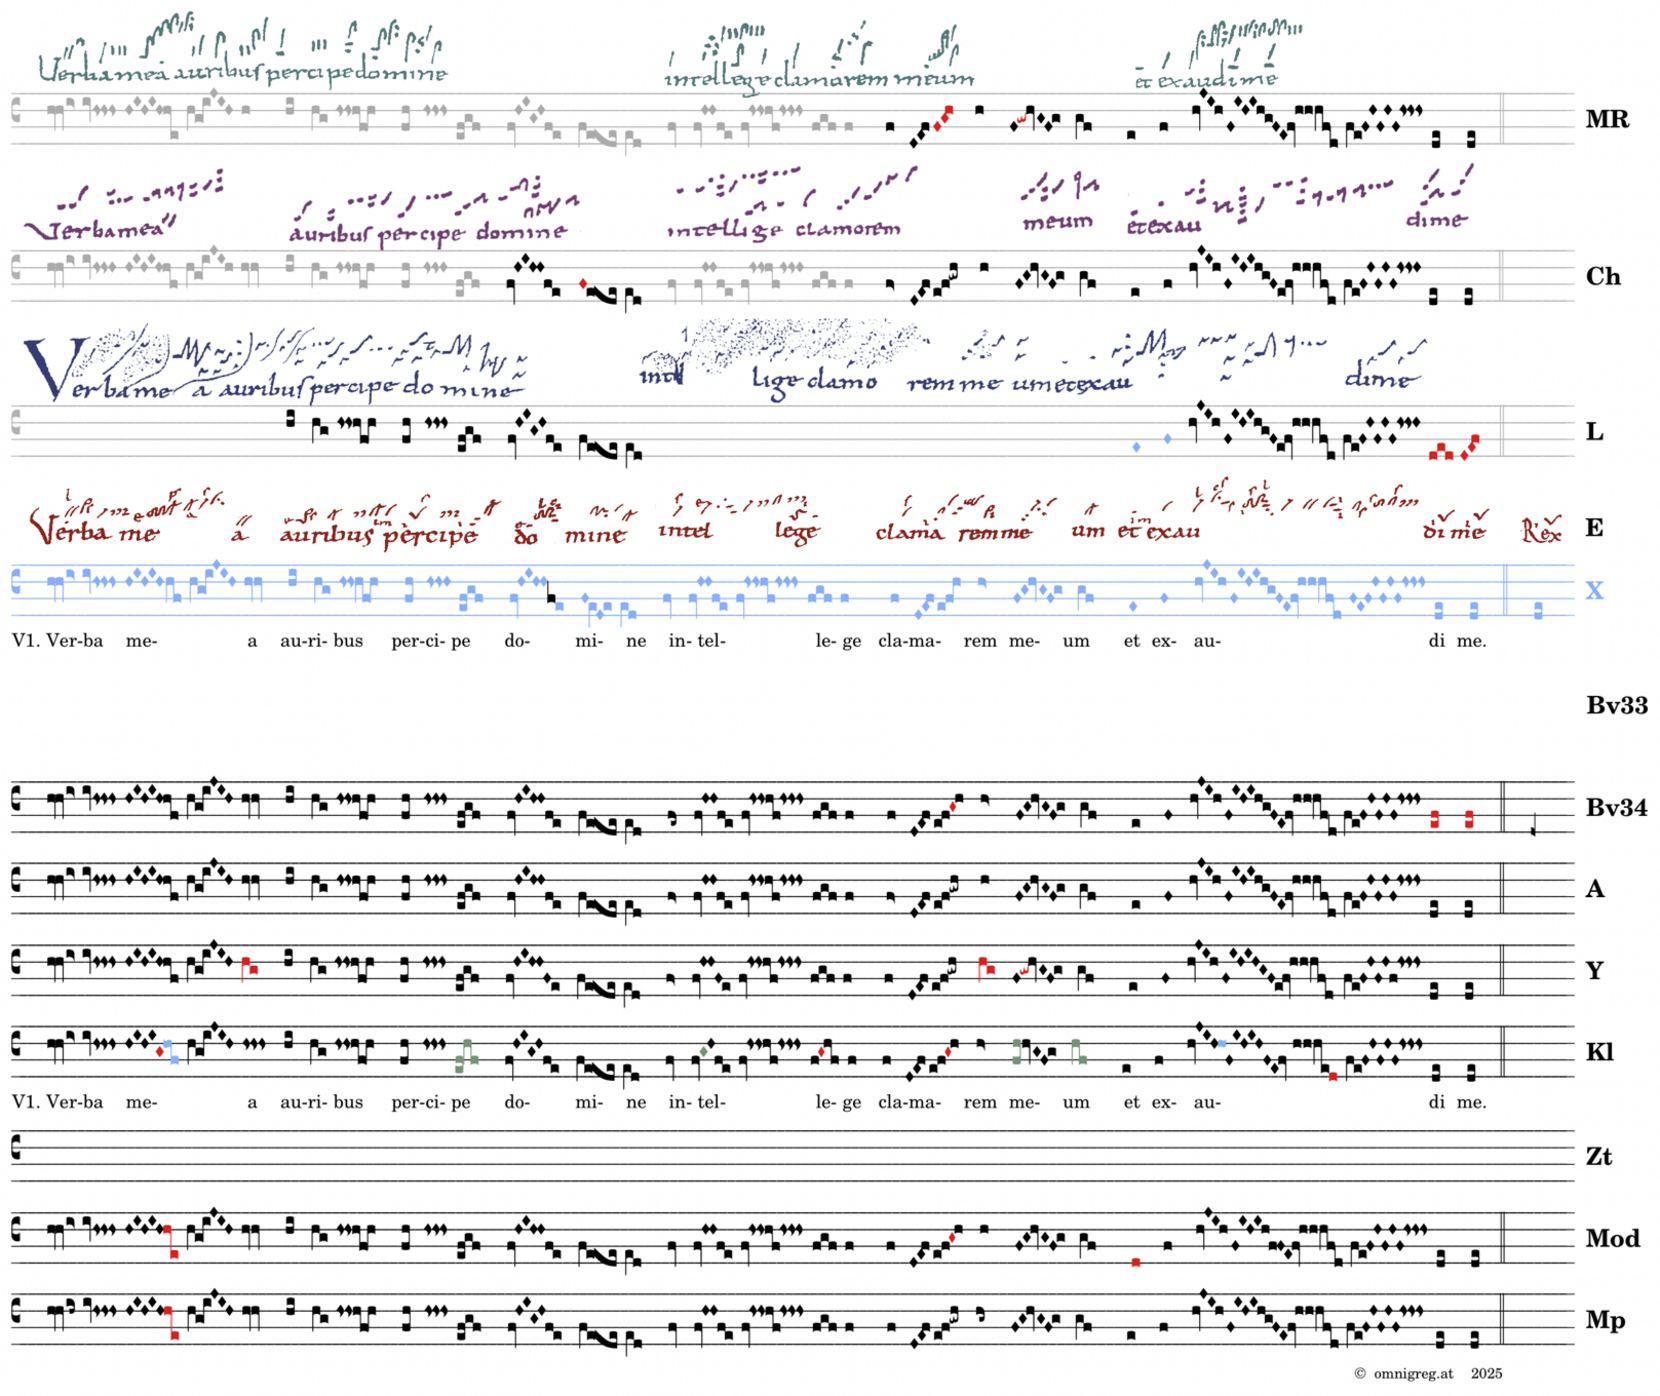 Verba mea auribus percipe domine intellege clamorem meum et exaudi me
MR
Verba mea auribus percipe domine intellige clamorem meum et exaudi me
Ch
Verba mea auribus percipe domine intellige clamorem meum et exaudi me
L
Verba me a auribus percipe do mine intel lege clama rem me um et exau di me
E
X
V1. Ver-ba me- a au-ri- bus per-ci- pe do- mi- ne in- tel- le- ge cla-ma- rem me- um et ex- au- di me.
Bv33
Bv34
A
Y
Kl
V1. Ver-ba me- a au-ri- bus per-ci- pe do- mi- ne in- tel- le- ge cla-ma- rem me- um et ex- au- di me.
Zt
Mod
Mp
© omnigreg.at 2025